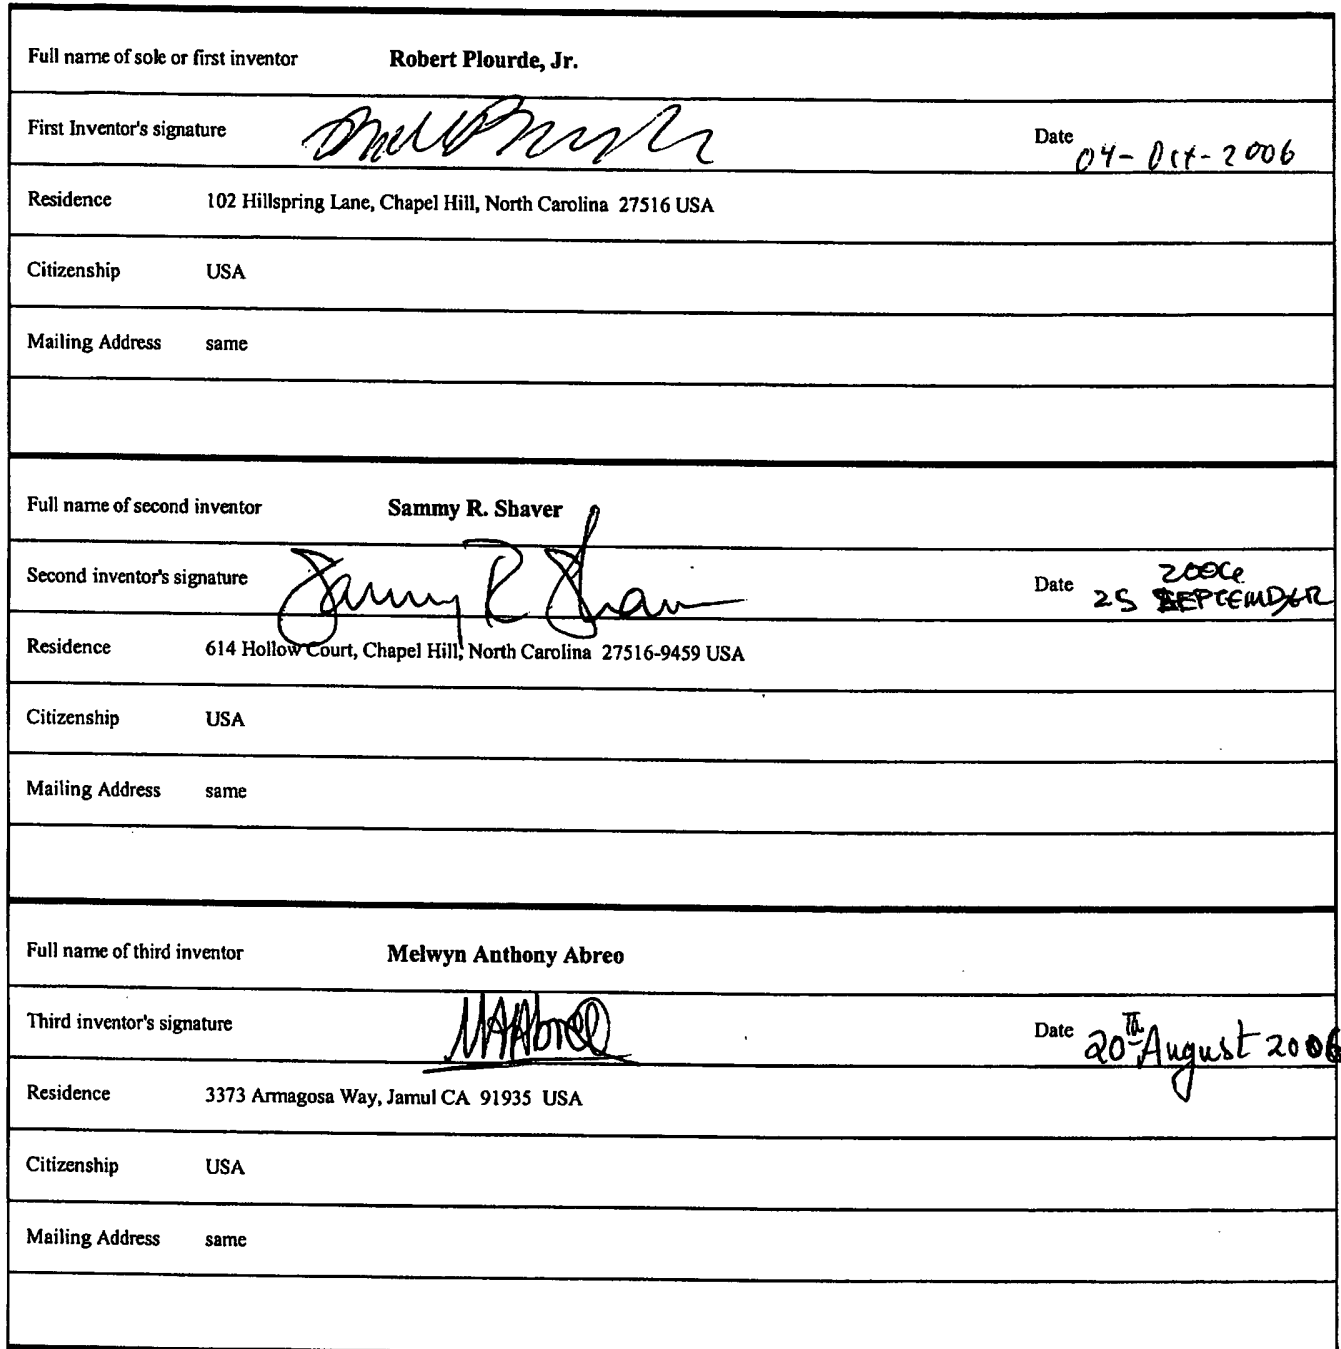 Full name of sole or first inventor Robert Plourde, Jr.
First Inventor's signature Date 04-Oct-2006
Residence 102 Hillspring Lane, Chapel Hill, North Carolina 27516 USA
Citizenship USA
Mailing Address same
Full name of second inventor Sammy R. Shaver
Second inventor's signature Sammy R Shaver Date 2006
25 SEPTEMBER
Residence 614 Hollow Court, Chapel Hill, North Carolina 27516-9459 USA
Citizenship USA
Mailing Address same
Full name of third inventor Melwyn Anthony Abreo
Third inventor's signature MAAbreo Date 20Th August 2006
Residence 3373 Armagosa Way, Jamul CA 91935 USA
Citizenship USA
Mailing Address same